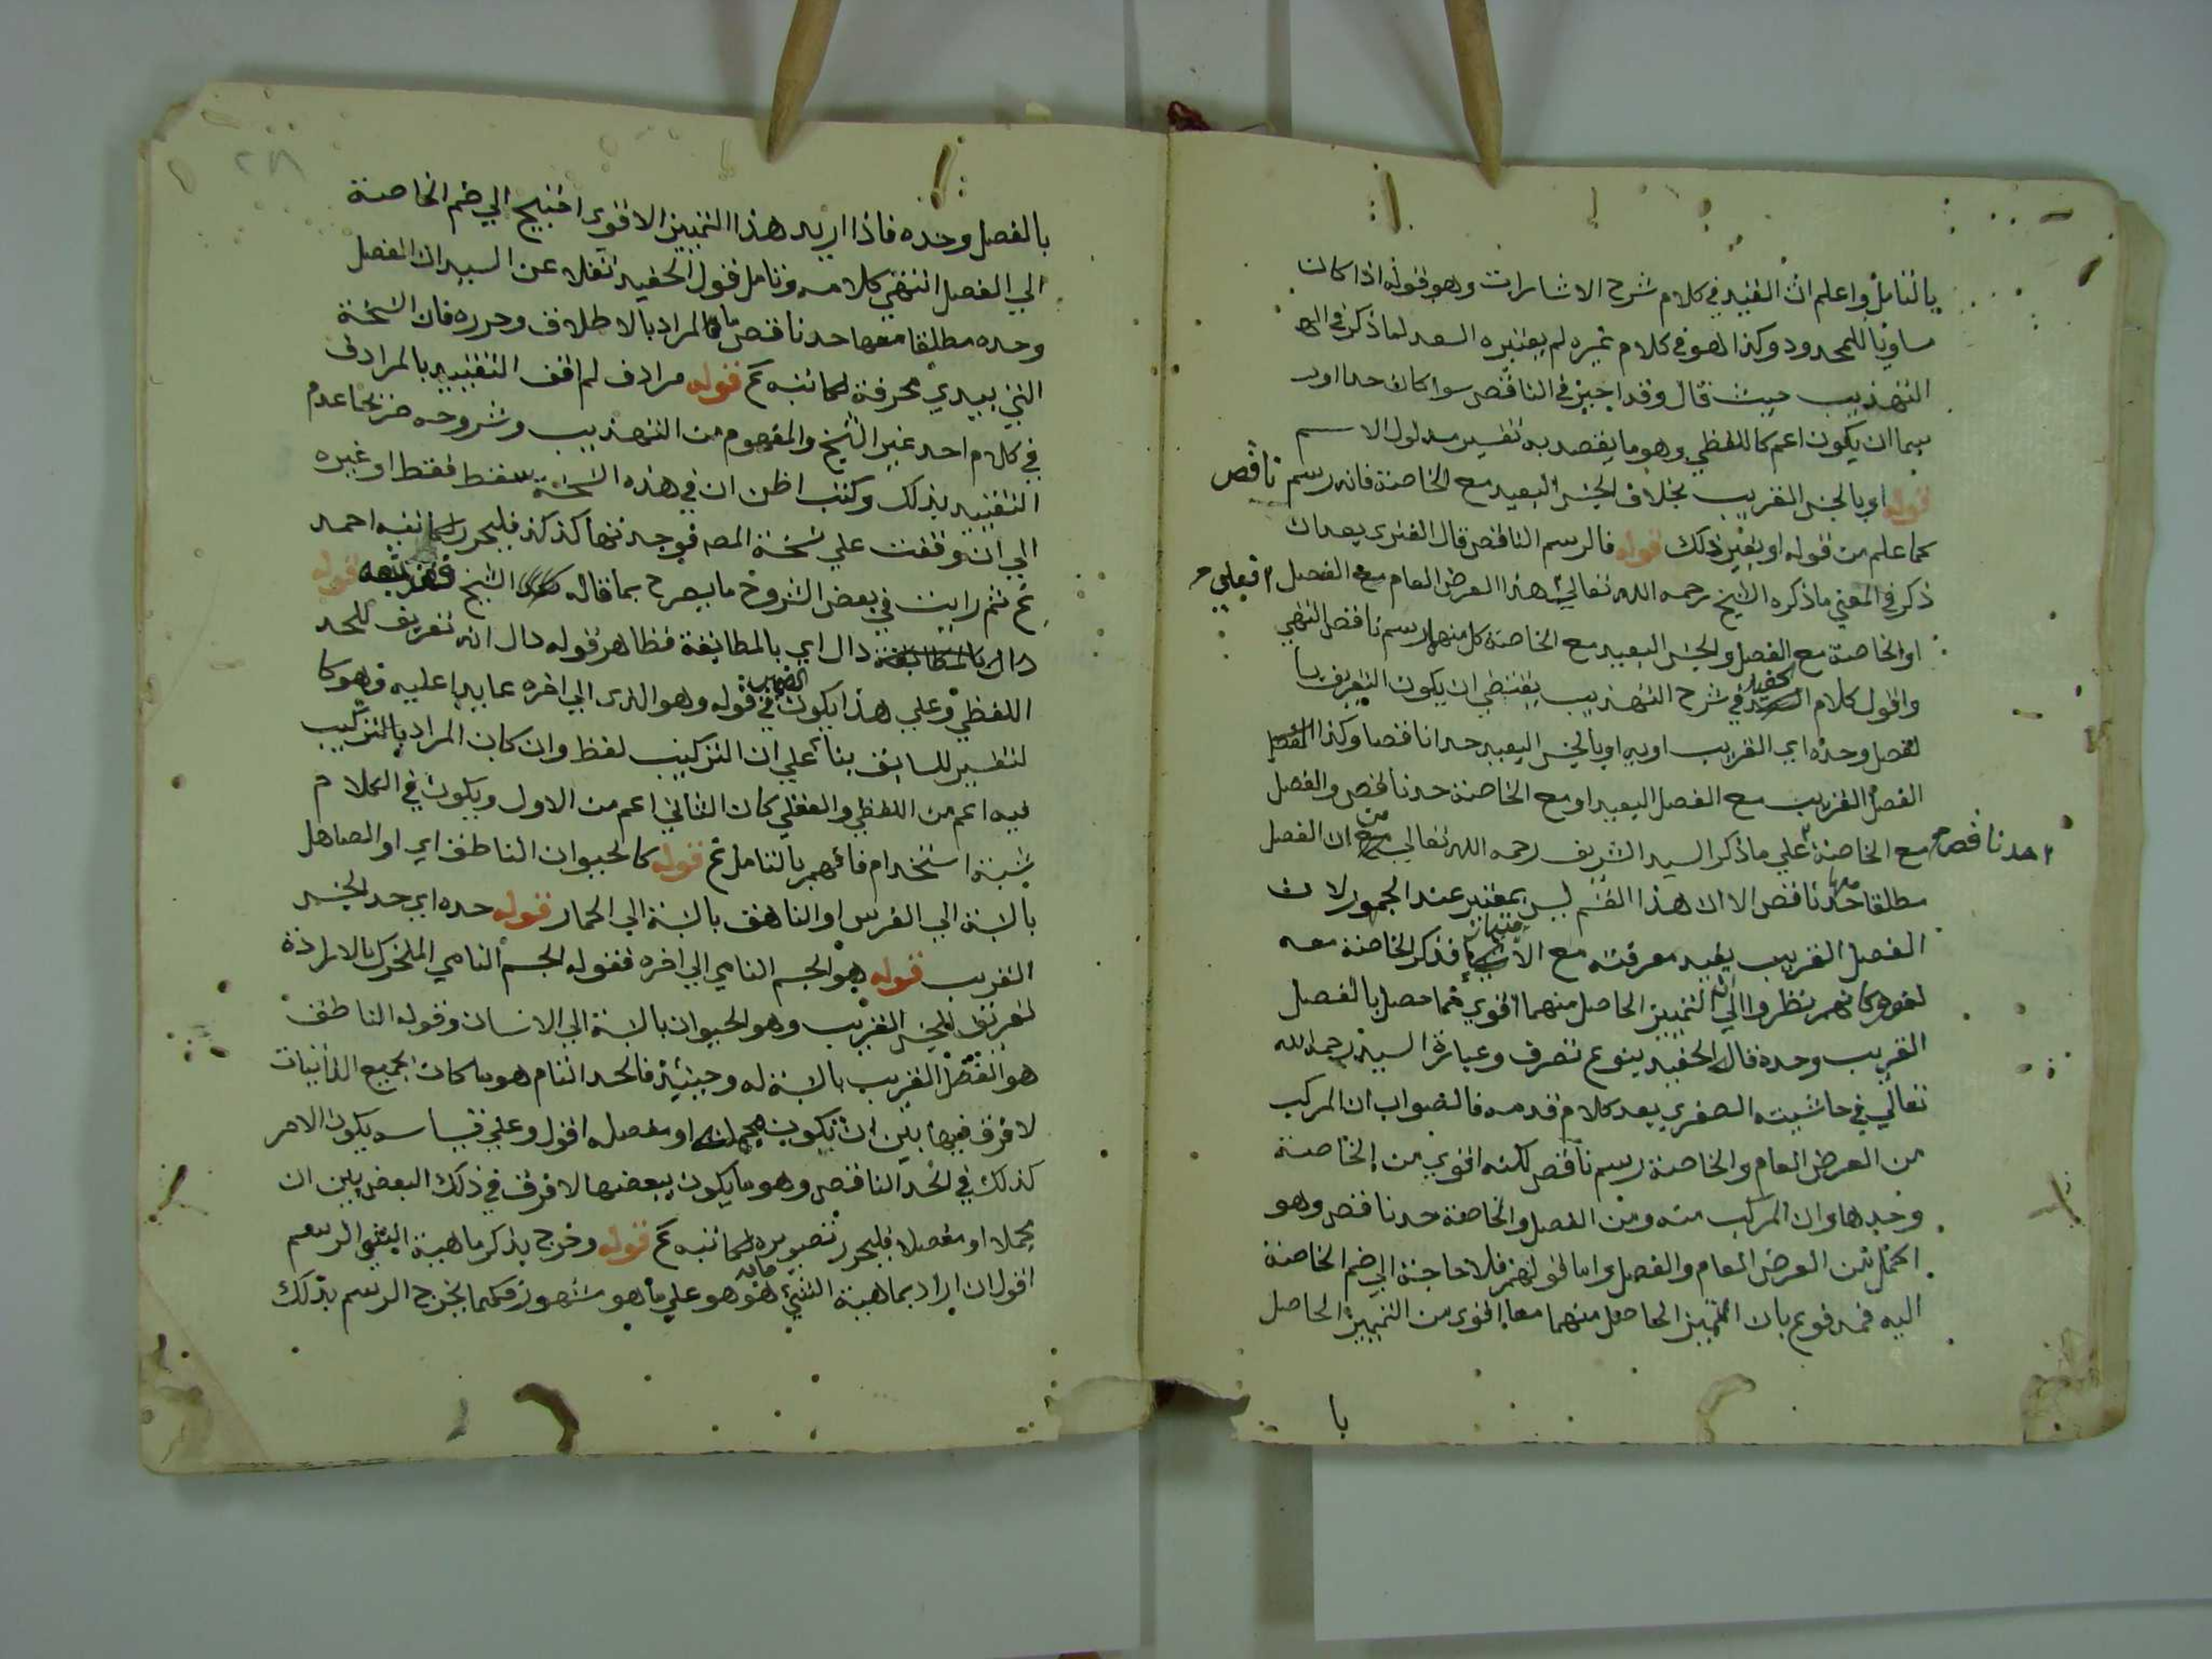 بالتامل واعلم ان القيد في كلام شرح الاشارات وهو قوله اذا كان
مساويا للمحدود وكذا هو في كلام غيره لم يعتبره السعد لما ذكر في
التهذيب حيث قال وقد اجيز في الناقص سوا كان حدا او ر
سما ان يكون اعم كاللفظي وهو ما يقصد به تفسير مدلول الاسم
قوله او بالجنس القريب بخلاف الجنس البعيد مع الخاصة فانه رسم ناقص
كما علم من قوله او بغير ذلك قوله فالرسم الناقص قال الفنري بعد ان
ذكر في المعني ما ذكره الشيخ رحمه الله تعالي هذا العرض العام مع الفصل فعلي
او الخاصة مع الفصل والجنس البعيد مع الخاصة كل منهما رسم ناقص انتهي
واقول كلام الحفيد في شرح التهذيب يقتضي ان يكون التعريف با
لفصل وحده اي القريب او به او بالجنس البعيد حدا ناقصا وكذا
الفصل القريب مع الفصل البعيد او مع الخاصة حد ناقص والفصل
مع الخاصة حد ناقص علي ما ذكر السيد الشريف رحمه الله تعالي من ان الفصل
مطلقا معها حد ناقص الا ان هذا القسم ليس بمعتبر عند الجمهور لان
الفصل القريب يفيد معرفته مع الامتياز فذكر الخاصة معه
لغو وكانهم نظروا الي ان التمييز الحاصل منهما اقوي مما حصل بالفصل
القريب وحده قال الحفيد بنوع تصرف وعبارة السيد رحمه الله
تعالي في حاشيته الصغري بعد كلام قدمه فالصواب ان المركب
من العرض العام والخاصة رسم ناقص لكنه اقوي من الخاصة
وحدها وان المركب منه ومن الفصل والخاصة حد ناقص وهو
اكمل من العرض العام والفصل واما قولهم فلا حاجة الي ضم الخاصة
اليه فمدفوع بان التمييز الحاصل منهما معا اقوي من التمييز الحاصل
با
بالفصل وحده فاذا اريد هذا التمييز الاقوي احتيج الي ضم الخاصة
الي الفصل انتهي كلامه وتامل قول الحفيد نقلا عن السيد ان الفصل
وحده مطلقا معها حد ناقص ما المراد بالاطلاق وحرره فان النسخة
التي بيدي محرفة لكاتبه عم قوله مرادف لم اقف التقييد بالمرادف
في كلام احد غير الشيخ والمفهوم من التهذيب وشروحه عدم
التقييد بذلك وكنت اظن ان في هذه النسخة سقط فقط او غيره
الي ان وقفت علي نسخة المص فوجدتها كذلك فليحرر لكاتبه احمد
عم ثم رايت في بعض الشروح ما يصرح بما قاله الشيخ قوله
دال اي بالمطابقة فظاهر قوله دال انه تعريف للحد
اللفظي وعلي هذا يكون الضمير في قوله وهو الذي الي اخره عايدا عليه فهو كا
لتفسير للسابق بناء علي ان التركيب لفظ وان كان المراد بالتركيب
فيه اعم من اللفظي والعقلي كان الثاني اعم من الاول ويكون في الكلام
شبه استخدام فافهم بالتامل عم قوله كالحيوان الناطق اي او الصاهل
بالنسبة الي الفرس او الناهق بالنسبة الي الحمار قوله حده اي حد الجنس
القريب قوله هو الجسم النامي الي اخره فقوله الجسم النامي المتحرك بالارادة
تعريف للجنس القريب وهو الحيوان بالنسبة الي الانسان وقوله الناطق
هو الفصل القريب بالنسبة له وحينئذ فالحد التام هو ما كان بجميع الذاتيات
لا فرق فيها بين ان تكون مجملة او مفصله اقول وعلي قياسه يكون الامر
كذلك في الحد الناقص وهو ما يكون ببعضها لا فرق في ذلك البعض بين ان
مجملا او مفصلا فليحرر تصويره لكاتبه عم قوله وخرج بذكر ماهية الشي الرسم
اقول ان اراد بماهية الشي ما به هو هو علي ما هو مشهور فكما يخرج الرسم بذلك